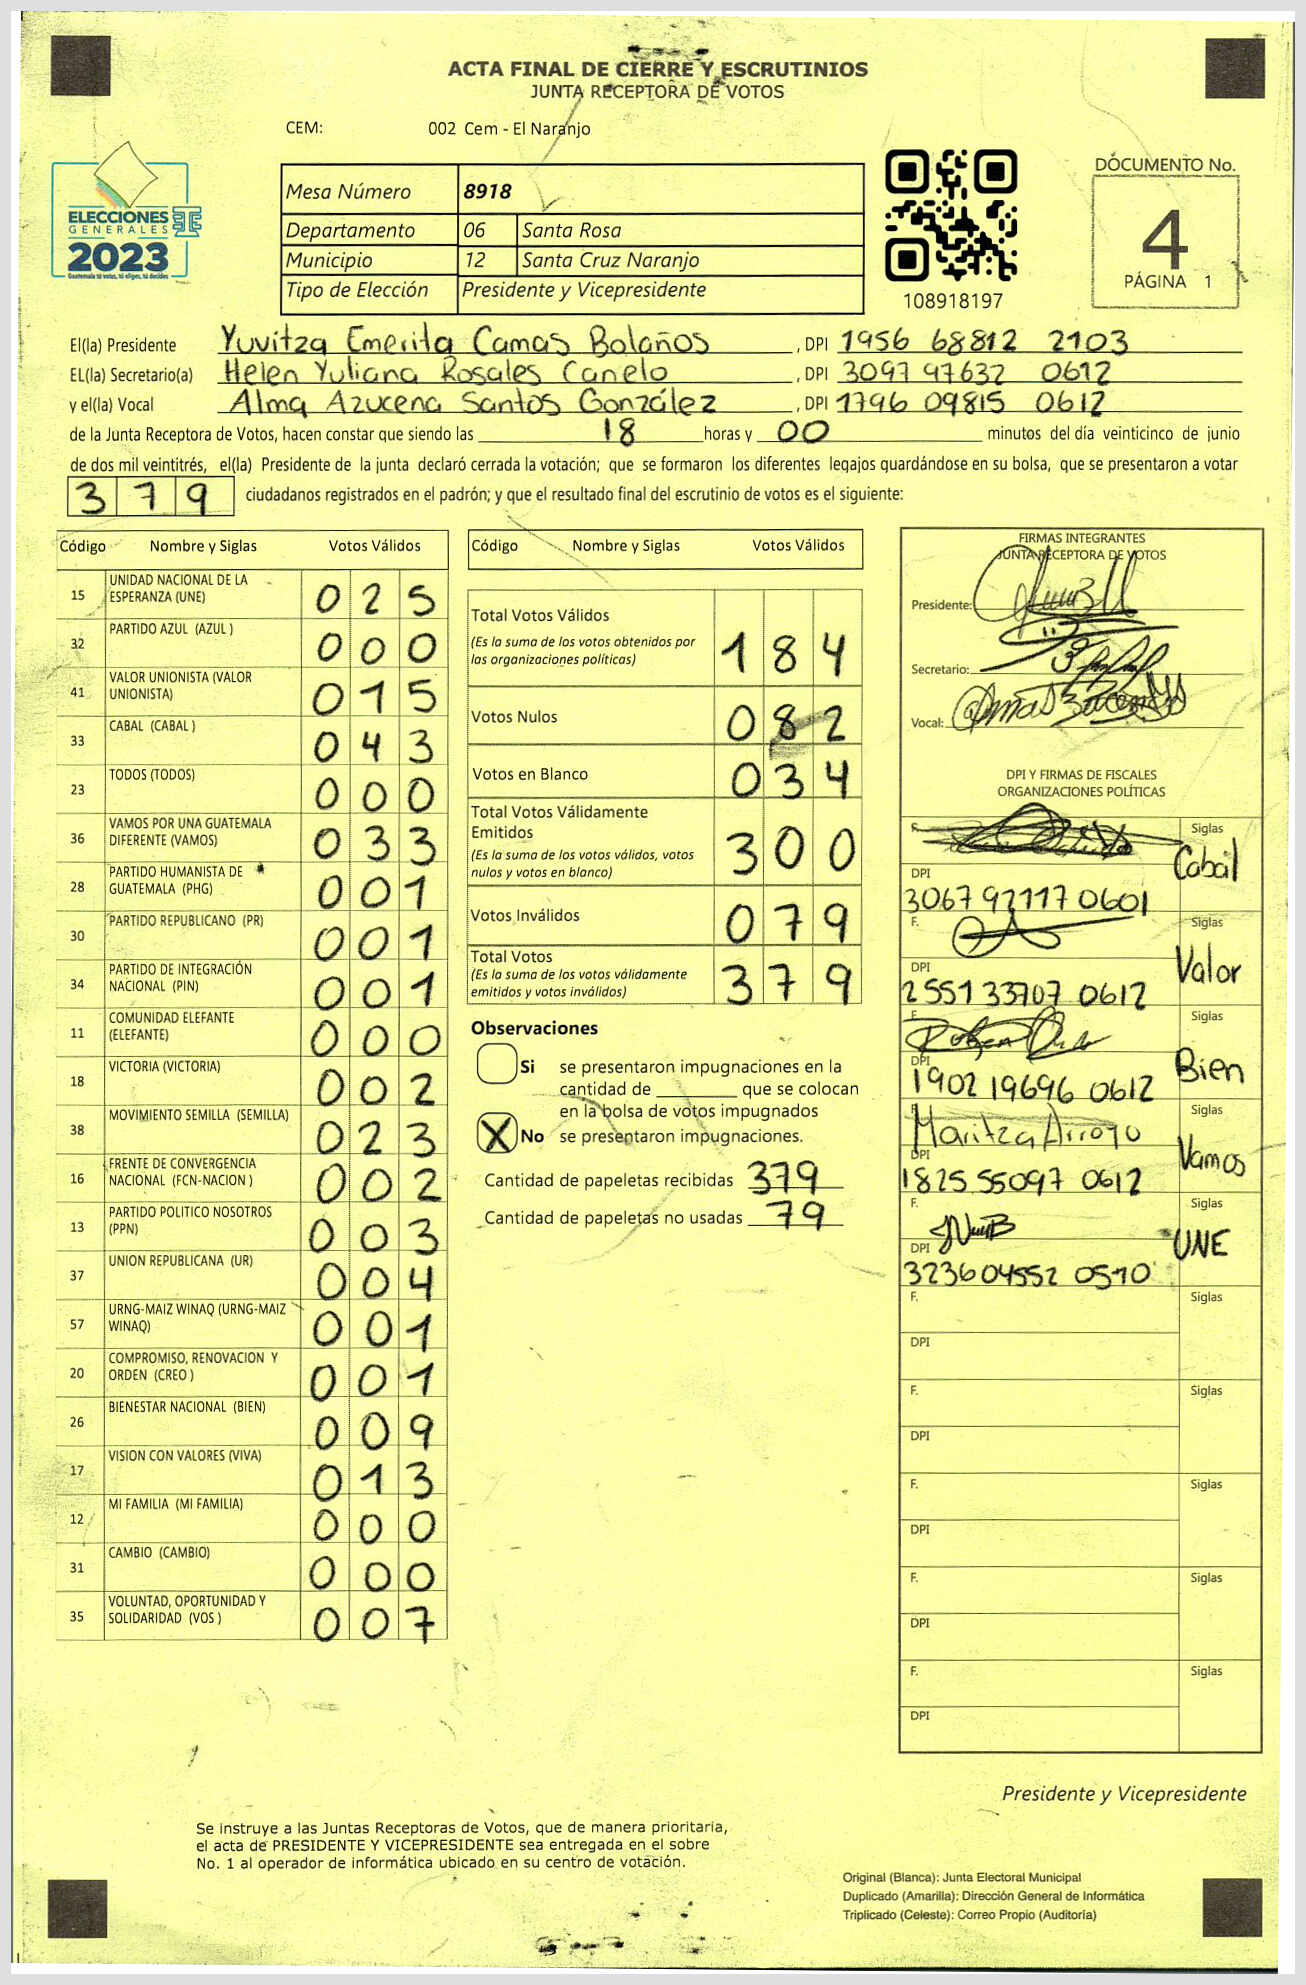 ACTA FINAL DE CIERRE Y ESCRUTINIOS
JUNTA RECEPTORA DE VOTOS
CEM: 002 Cem - El Naranjo
ELECCIONES
GENERALES
2023
Guatemala tú votas, tú eliges, tú decides
Mesa Número 8918
Departamento 06 Santa Rosa
Municipio 12 Santa Cruz Naranjo
Tipo de Elección Presidente y Vicepresidente
108918197
DOCUMENTO No.
4
PÁGINA 1
El(la) Presidente Yuvitza Emerita Camas Bolaños , DPI 1956 68812 2103
EL(la) Secretario(a) Helen Yuliana Rosales Canelo , DPI 3097 97632 0612
y el(la) Vocal Alma Azucena Santos González , DPI 1796 09815 0612
de la Junta Receptora de Votos, hacen constar que siendo las 18 horas y 00 minutos del día veinticinco de junio
de dos mil veintitrés, el(la) Presidente de la junta declaró cerrada la votación; que se formaron los diferentes legajos guardándose en su bolsa, que se presentaron a votar
379 ciudadanos registrados en el padrón; y que el resultado final del escrutinio de votos es el siguiente:
Código Nombre y Siglas Votos Válidos
15 UNIDAD NACIONAL DE LA ESPERANZA (UNE) 025
32 PARTIDO AZUL (AZUL ) 000
41 VALOR UNIONISTA (VALOR UNIONISTA) 015
33 CABAL (CABAL ) 043
23 TODOS (TODOS) 000
36 VAMOS POR UNA GUATEMALA DIFERENTE (VAMOS) 033
28 PARTIDO HUMANISTA DE GUATEMALA (PHG) 001
30 PARTIDO REPUBLICANO (PR) 001
34 PARTIDO DE INTEGRACIÓN NACIONAL (PIN) 001
11 COMUNIDAD ELEFANTE (ELEFANTE) 000
18 VICTORIA (VICTORIA) 002
38 MOVIMIENTO SEMILLA (SEMILLA) 023
16 FRENTE DE CONVERGENCIA NACIONAL (FCN-NACION ) 002
13 PARTIDO POLITICO NOSOTROS (PPN) 003
37 UNION REPUBLICANA (UR) 004
57 URNG-MAIZ WINAQ (URNG-MAIZ WINAQ) 001
20 COMPROMISO, RENOVACION Y ORDEN (CREO ) 001
26 BIENESTAR NACIONAL (BIEN) 009
17 VISION CON VALORES (VIVA) 013
12 MI FAMILIA (MI FAMILIA) 000
31 CAMBIO (CAMBIO) 000
35 VOLUNTAD, OPORTUNIDAD Y SOLIDARIDAD (VOS ) 007
Código Nombre y Siglas Votos Válidos
Total Votos Válidos 184
(Es la suma de los votos obtenidos por
las organizaciones políticas)
Votos Nulos 082
Votos en Blanco 034
Total Votos Válidamente
Emitidos 300
(Es la suma de los votos válidos, votos
nulos y votos en blanco)
Votos Inválidos 079
Total Votos 379
(Es la suma de los votos válidamente
emitidos y votos inválidos)
Observaciones
Si se presentaron impugnaciones en la
cantidad de ________ que se colocan
en la bolsa de votos impugnados
X No se presentaron impugnaciones.
Cantidad de papeletas recibidas 379
Cantidad de papeletas no usadas 79
FIRMAS INTEGRANTES
JUNTA RECEPTORA DE VOTOS
Presidente:
Secretario:
Vocal:
DPI Y FIRMAS DE FISCALES
ORGANIZACIONES POLÍTICAS
F. Siglas Cabal
DPI 3067 92117 0601
F. Siglas Valor
DPI 2551 33707 0612
F. Siglas Bien
DPI 1902 19696 0612
F. Maritza Arroyo Siglas Vamos
DPI 1825 55097 0612
F. Siglas UNE
DPI 3236 04552 0510
F. Siglas
DPI
F. Siglas
DPI
F. Siglas
DPI
F. Siglas
DPI
F. Siglas
DPI
Presidente y Vicepresidente
Se instruye a las Juntas Receptoras de Votos, que de manera prioritaria,
el acta de PRESIDENTE Y VICEPRESIDENTE sea entregada en el sobre
No. 1 al operador de informática ubicado en su centro de votación.
Original (Blanca): Junta Electoral Municipal
Duplicado (Amarilla): Dirección General de Informática
Triplicado (Celeste): Correo Propio (Auditoría)